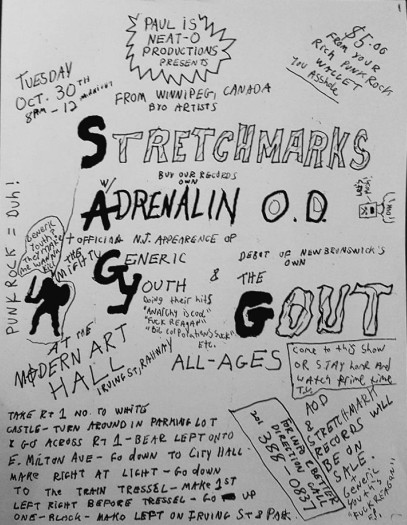 PAUL IS
NEAT-O
PRODUCTIONS
PRESENTS
$5.00
FROM YOUR
RICH PUNK ROCK
WALLET
YOU ASSHOLE
TUESDAY
OCT. 30TH
8PM - 12
FROM WINNIPEG, CANADA
BYO ARTISTS
STRETCHMARKS
BUY OUR RECORDS
W/
OWN
ADRENALIN O.D.
+ OFFICIAL N.J. APPEARENCE OF
THE
MIGHTY
GENERIC
YOUTH
doing their hits
"ANARCHY is COOL"
"FUCK REAGAN"
"Big Corporations Suck"
ETC.
&
DEBUT OF NEW BRUNSWICK'S
OWN
THE
GOUT
PUNK ROCK = Duh!
GENERIC
YOUTH
AT THE
MODERN ART
HALL
IRVING ST, RAHWAY
ALL-AGES
COME to this SHOW
OR STAY home AND
WATCH Prime time
T.V.
AOD
& STRETCHMARK
RECORDS WILL
BE ON
SALE.
GENERIC
YOUTH'S
"FUCK REAGAN"
FOR BETTER
INFO CALL
DIRECTION
201
388
0837
TAKE RT 1 NO. TO WHITE
CASTLE - TURN AROUND IN PARKING LOT
& GO ACROSS RT 1 - BEAR LEFT ONTO
E. MILTON AVE - GO DOWN TO CITY HALL.
MAKE RIGHT AT LIGHT - GO DOWN
TO THE TRAIN TRESSEL - MAKE 1ST
LEFT RIGHT BEFORE TRESSEL - GO UP
ONE - BLOCK - MAKE LEFT ON IRVING ST & PARK.